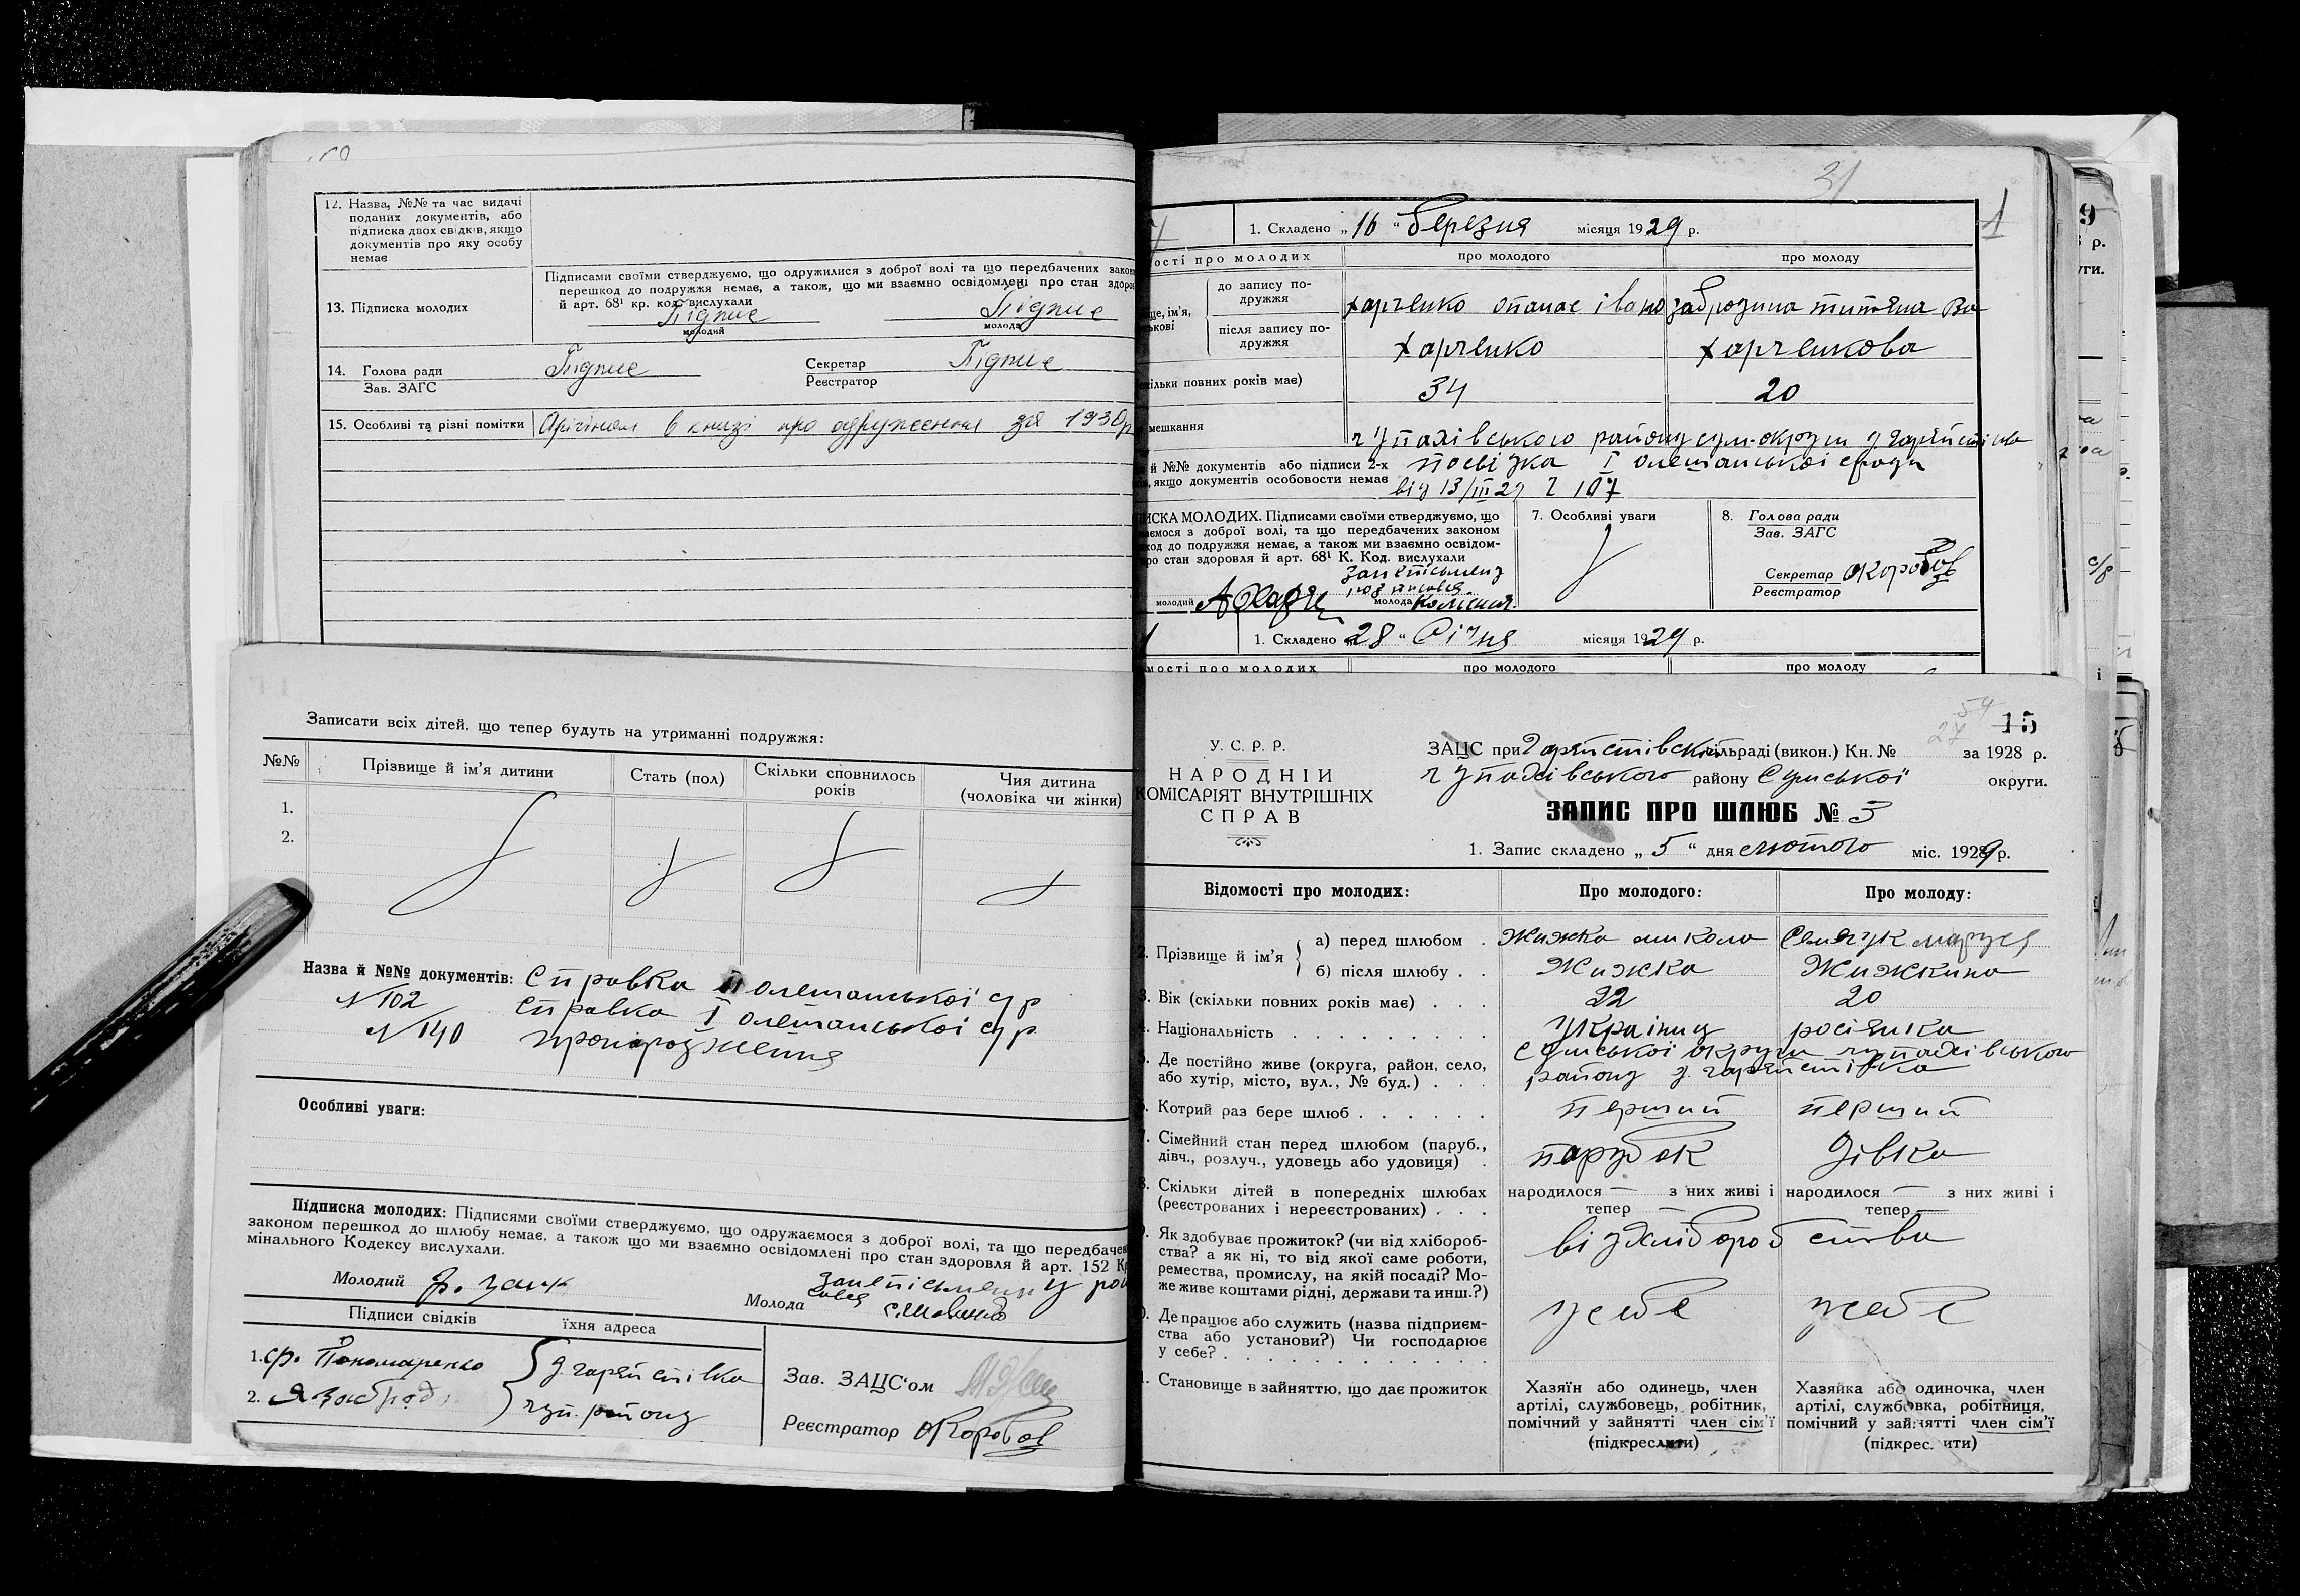 12. Назва, №№ та час видачі
поданих документів, або
підписка двох свідків, якщо
документів про яку особу
немає
13. Підписка молодих
Підписами своїми стверджуємо, що одружилися з доброї волі та що передбачених закон
перешкод до подружжя немає, а також, що ми взаємно освідомлені про стан здоро
й арт. 68¹ кр. код. вислухали
Підпис
молодий
Підпис
молода
14. Голова ради
Зав. ЗАГС
Підпис
Секретар
Реєстратор
Підпис
15. Особливі та різні помітки
Орігінал в книзі про одруження за 1930р
Записати всіх дітей, що тепер будуть на утриманні подружжя:
№№
Прізвище й ім'я дитини
Стать (пол)
Скільки сповнилось
років
Чия дитина
(чоловіка чи жінки)
1.
2.
Назва й №№ документів: Справка II олешанської с/р
№ 102 Справка I олешанської с/р
№ 140
Особливі уваги:
Підписка молодих: Підписями своїми стверджуємо, що одружаємося з доброї волі, та що передбачен
законом перешкод до шлюбу немає, а також що ми взаємно освідомлені про стан здоровля й арт. 152 Кр
мінального Кодексу вислухали.
Молодий
Молода
Підписи свідків
їхня адреса
1. ф. Пономаренко
2.
д. гарпестівка
чуп. району
Зав. ЗАЦС'ом
Реєстратор ОКоробов
31
1
1. Складено „16“ березня місяця 1929 р.
ості про молодих
про молодого
про молоду
ще, ім'я,
ькові
до запису по-
дружжя
Харченко опанас івано
забродина титяна Ва
після запису по-
дружжя
Харченко
Харченкова
скільки повних років має)
34
20
мешкання
чупахівського району сум. округи
й №№ документів або підписи 2-х
якщо документів особовости немає
посвідка I олешанської сради
від 13/III 29 Ч 107
ИСКА МОЛОДИХ. Підписами своїми стверджуємо, що
аємося з доброї волі, та що передбачених законом
код до подружжя немає, а також ми взаємно освідом-
ро стан здоровля й арт. 68¹ К. Код. вислухали
молодий
молода
7. Особливі уваги
8. Голова ради
Зав. ЗАГС
Секретар ОКоробов
Реєстратор
1. Складено „28“ Січня місяця 1929 р.
мості про молодих
про молодого
про молоду
15
У. С. Р. Р.
НАРОДНІЙ
КОМІСАРІЯТ ВНУТРІШНІХ
СПРАВ
ЗАЦС при сільраді (викон.) Кн. № за 1928 р.
чупахівського району Сумської округи.
ЗАПИС ПРО ШЛЮБ № 3
1. Запис складено „5“ дня лютого міс. 1929 р.
Відомості про молодих:
Про молодого:
Про молоду:
2. Прізвище й ім'я
а) перед шлюбом
Жижка микола
маруся
б) після шлюбу
Жижка
Жижкина
3. Вік (скільки повних років має)
22
20
Національність
Українец
росіянка
Де постійно живе (округа, район, село,
або хутір, місто, вул., № буд.)
Сумської округи чупахівського
району д. гарпестівка
Котрий раз бере шлюб
перший
перший
Сімейний стан перед шлюбом (паруб.,
дівч., розлуч., удовець або удовиця)
парубок
дівка
Скільки дітей в попередніх шлюбах
(реєстрованих і нереєстрованих)
народилося — з них живі і
тепер —
народилося — з них живі і
тепер —
Як здобуває прожиток? (чи від хлібороб-
ства? а як ні, то від якої саме роботи,
ремества, промислу, на якій посаді? Мо-
же живе коштами рідні, держави та инш.?)
від хліборобства
Де працює або служить (назва підприєм-
ства або установи?) Чи господарює
у себе?
у себе
у себе
Становище в зайняттю, що дає прожиток
Хазяїн або одинець, член
артілі, службовець, робітник,
помічний у зайнятті член сім'ї
(підкреслити)
Хазяйка або одиночка, член
артілі, службовка, робітниця,
помічний у зайнятті член сім'ї
(підкрес. ити)